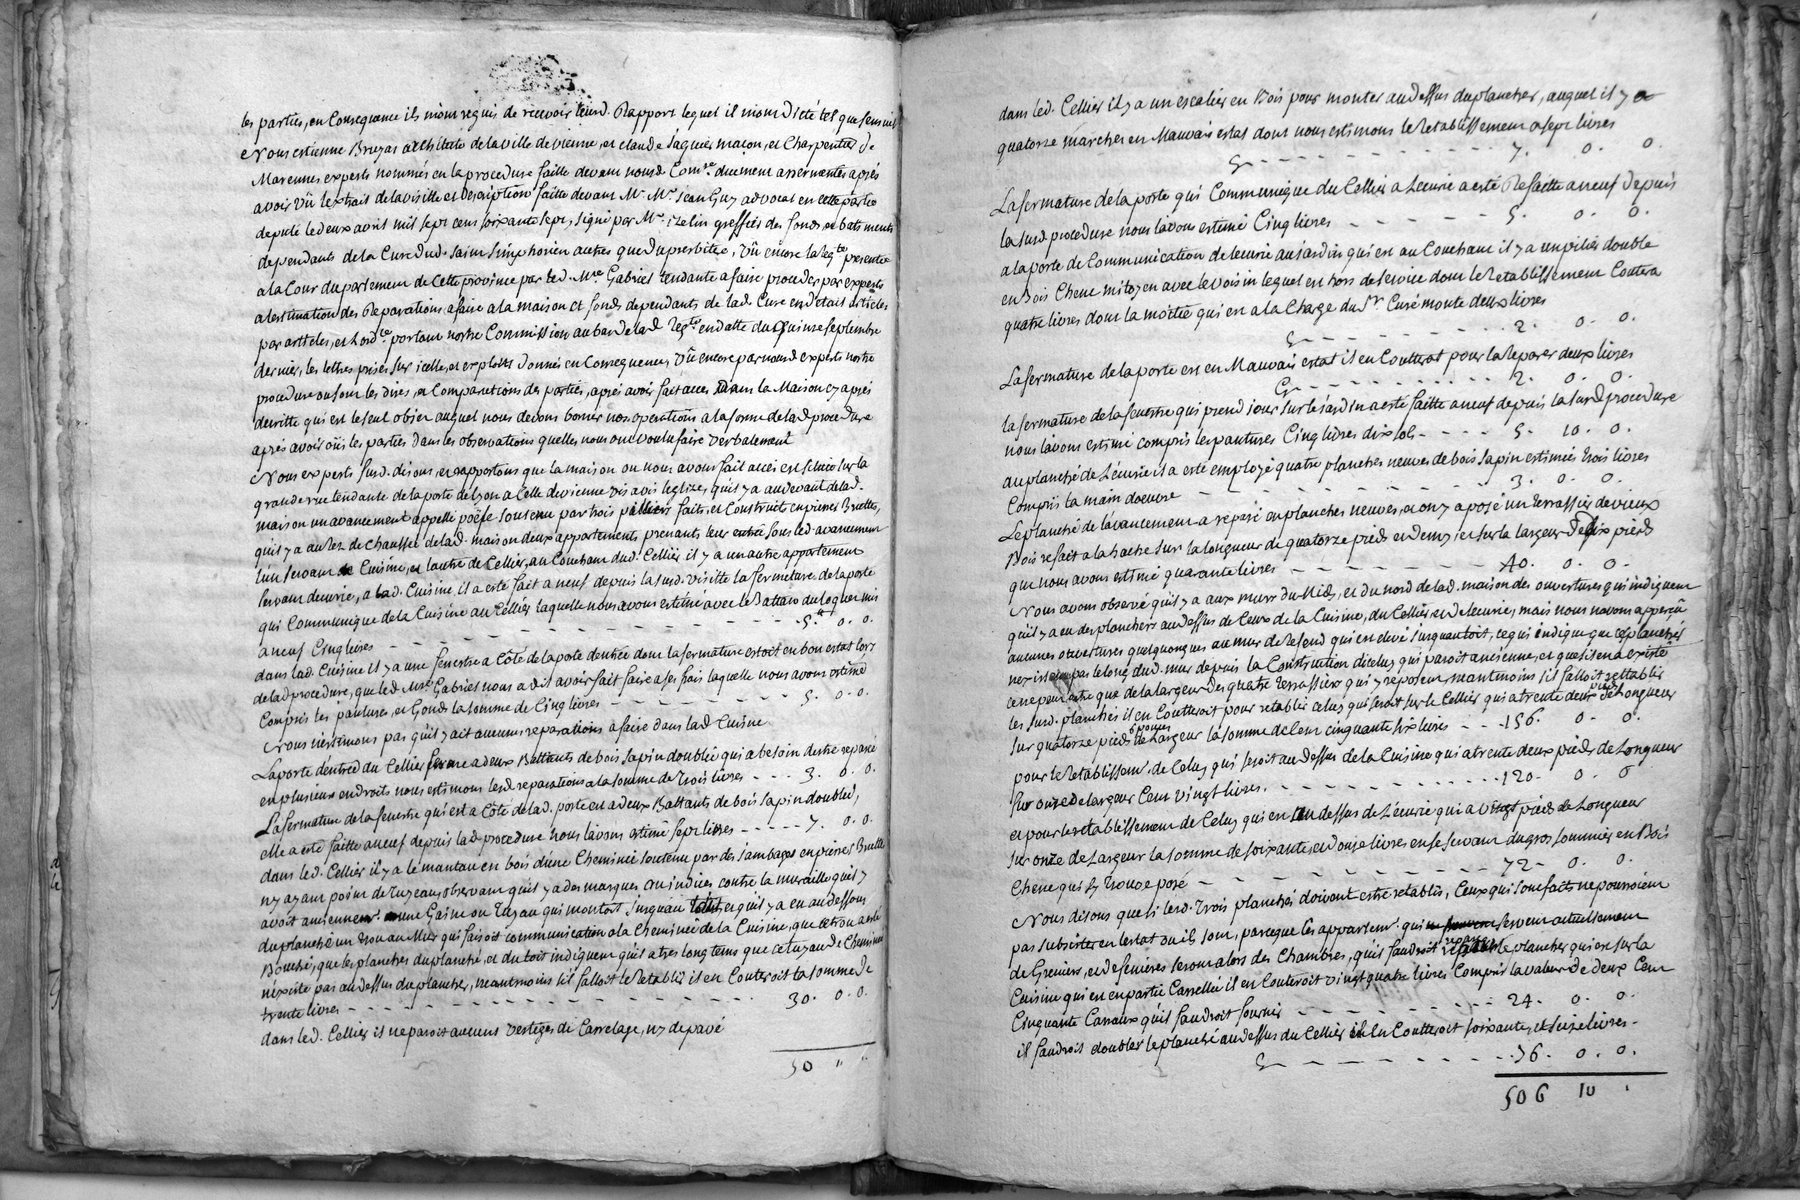 les parties, en Consequance ils m'ont requis de recevoir leurd. Rapport lequel il m'ont dicté tel que sensuit
Nous estienne Bruyas architecte de la ville de vienne, et claude Jaques maçon, et Charpentier de
Marennes experts nommés en la procedure faitte devant nousd. Comre. duement assermentés après
avoir vû l'extrait de la visitte, et description faitte devant Me. Me. Jean Guy advocat en cette partie
deputé le deux avril mil sept cent soixante sept, signé par Me. greffier des fonds, et batiments
dependants de la Cure dud. saint simphorien autres que du presbitere, vû encore la regte. presentée
a la Cour du parlement de Cette province par led. Mre. Gabriel tendante a faire proceder par experts
a l'estimation des Reparations a faire a la maison et fonds dependants de lad. Cure en détail articles
par articles, et Lordce. portant nostre Commission au bas de lad. regte. en datte du Quinze septembre
dernier, les lettres prises sur icelle, et exploits donnés en Consequence, vû encore par nousd. experts nostre
procedure ou sont les dires, et Comparutions des parties, après avoir fait acces dans la Maison cy après
decritte qui est le seul objet auquel nous devons borner nos operations a la forme de lad. procedure
après avoir oüi les parties dans les observations quelles nous ont voulu faire verbalement
Nous experts susd. disons, et rapportons que la maison ou nous avons fait acces est scituée sur la
grande rue tendante de la porte de Lyon a Celle de vienne vis avis leglize, quil y a au devant de lad.
maison un avancement appellé poëse soutenu par trois pilliers faits, et Construits en pierres Bruttes,
quil y a au Rez de chaussée de lad. maison deux appartements prenants leur entrée sous led. avancement
l'un servant de Cuisine, et lautre de Cellier, au Couchant dud. Cellier il y a un autre appartement
servant decurie, a lad. Cuisine il a esté fait a neuf depuis la susd. visitte la fermeture de la porte
qui Communique de la Cuisine au Cellier laquelle nous avons estimé avec le Battant du loquet mis
a neuf Cinq livres - - - - - - - - - - 5. 0. 0.
dans lad. Cuisine il y a une fenestre a Côté de la porte dentrée dont la fermature estoit en bon estat lors
de lad procedure, que led. Mre. Gabriel nous a dit avoir fait faire a ses frais laquelle nous avons estimé
Compris les pantures, et gonds la somme de Cinq livres - - - - - - 5. 0. 0.
Nous n'estimons pas quil y ait aucunes reparations a faire dans lad. Cuisine
La porte d'entrée du Cellier ferme a deux Battants de bois sapin doublée qui a besoin destre reparée
en plusieurs endroits nous estimons lesd. reparations a la somme de Trois livres - - - 3. 0. 0.
La fermature de la fenestre qui est a Côté de lad. porte est a deux Battants de bois sapin doublée,
elle a esté faitte a neuf depuis lad. procedure nous l'avons estimé sept livres - - - - - 7. 0. 0.
dans led. Cellier il y a le mantau en bois d'une Cheminée soutenu par des Jambages en pierres Brutte
n'y ayant point de Tuyeau, observant quil y a des marques ou indices contre la muraille quil y
avoit anciennemt. une Gaine ou Tuyau qui montoit jusquau toit, et quil y a eu au dessous
du planché un trou au Mur qui faisoit communication a la Cheminée de la Cuisine, que ce trou a esté
Bouché, que les planches du planché, et du toit indiquent quil a tres long tems que ce tuyau de Cheminée
n'existe pas au dessus du plancher, neantmoins s'il falloit le retablir il en Couteroit la somme de
trente livres - - - - - - - - - - - 30. 0. 0.
dans led. Cellier il ne paroit aucuns vestiges de Carrelage, ny de pavé
50 " "
dans led. Cellier il y a un escalier en Bois pour monter au dessus du plancher, auquel il y a
quatorze marches en Mauvais estat dont nous estimons le Retablissement a sept livres
Cy - - - - - - - - - - 7. 0. 0.
La fermature de la porte qui Communique du Cellier a Lecurie a esté Refaitte a neuf depuis
la susd. procedure nous l'avons estimé Cinq livres - - - - - 5. 0. 0.
a la porte de Communication de lecurie au jardin qui est au Couchant il y a un pilier double
en Bois Chene mitoyen avec le voisin lequel est hors de service dont le Retablissement Coutera
quatre livres dont la moitié qui est a la Charge du Sr. Curé monte deux livres
Cy - - - - - - - - 2. 0. 0.
La fermature de la porte est en Mauvais estat il en Coutterat pour la Reparer deux livres
Cy - - - - - - - - 2. 0. 0.
la fermature de la fenestre qui prend jour sur le jardin a esté faitte a neuf depuis la susd. procedure
nous l'avons estimé compris les pantures Cinq livres dix sols - - - - 5. 10. 0.
au planché de Lécurie il a esté employé quatre planches neuves de bois sapin estimées trois livres
Compris la main doeuvre - - - - - - - - 3. 0. 0.
Le planché de l'avancement a reparé en planches neuves, et on y a posé un terrassier de vieux
Bois refait a la hache sur la longueur de quatorze pieds et demy, et sur la largeur de dix pieds
que nous avons estimé quarante livres - - - - - - - 40. 0. 0.
Nous avons observé quil y a aux murs du Midy, et du nord de lad. maison des ouvertures qui indiquent
quil y a eu des planchers au dessus de Ceux de la Cuisine, du Cellier, et de lecurie, mais nous n'avons apperçû
aucunes ouvertures quelquonques au mur de refend qui est elevé jusquau toit, ce qui indique que ces planchés
n'existoient pas le long dud. mur depuis la Construction dicelui qui paroit ancienne, et que sil en a existé
ce ne peut estre que de la largeur des quatre terrassiers qui y reposent, neantmoins s'il falloit rettablir
les susd. planchés il en Coutteroit pour retablir celui qui seroit sur le Cellier qui a trente deux pieds de Longueur
sur quatorze pieds 6 pouces de Largeur la somme de Cent cinquante six livres - - - 156. 0. 0.
pour le Retablissemt. de Celui qui seroit au dessus de la Cuisine qui a trente deux pieds de Longueur
sur onze de largeur Cent vingt livres - - - - - - - - 120. 0. 0
et pour le retablissement de Celui qui est au dessus de Lécurie qui a vingt pieds de Longueur
sur onze de Largeur la somme de soixante, et douze livres en se servant du gros sommier en Bois
Chene qui s'y trouve posé - - - - - - - - 72. 0. 0.
Nous disons que si lesd. trois planchés doivent estre retablis, Ceux qui sont faits ne pourroient
pas subsister en l'estat ou ils sont, parceque les appartemt. qui servent actuellement
de Greniers, et de fenieres seront alors des Chambres, quil faudroit reparer le plancher qui est sur la
Cuisine qui est en partie Carrellée il en Couteroit vingt quatre livres Compris la valeur de deux Cent
Cinquante Carraux quil faudroit fournir - - - - - - 24. 0. 0.
il faudroit doubler le planché au dessus du Cellier il en Coutteroit soixante, et seize livres
Cy - - - - - - - - - 76. 0. 0.
506 10